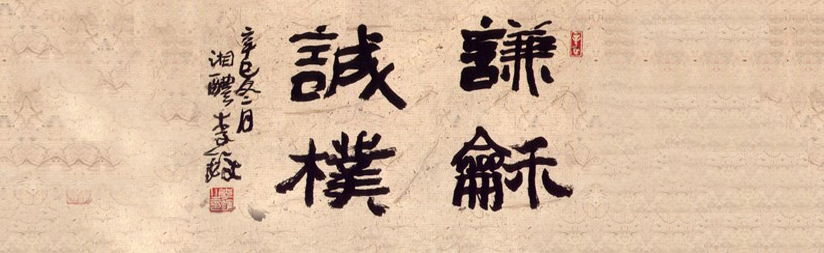 謙龢
誠樸
辛巳冬二月
湘醴李